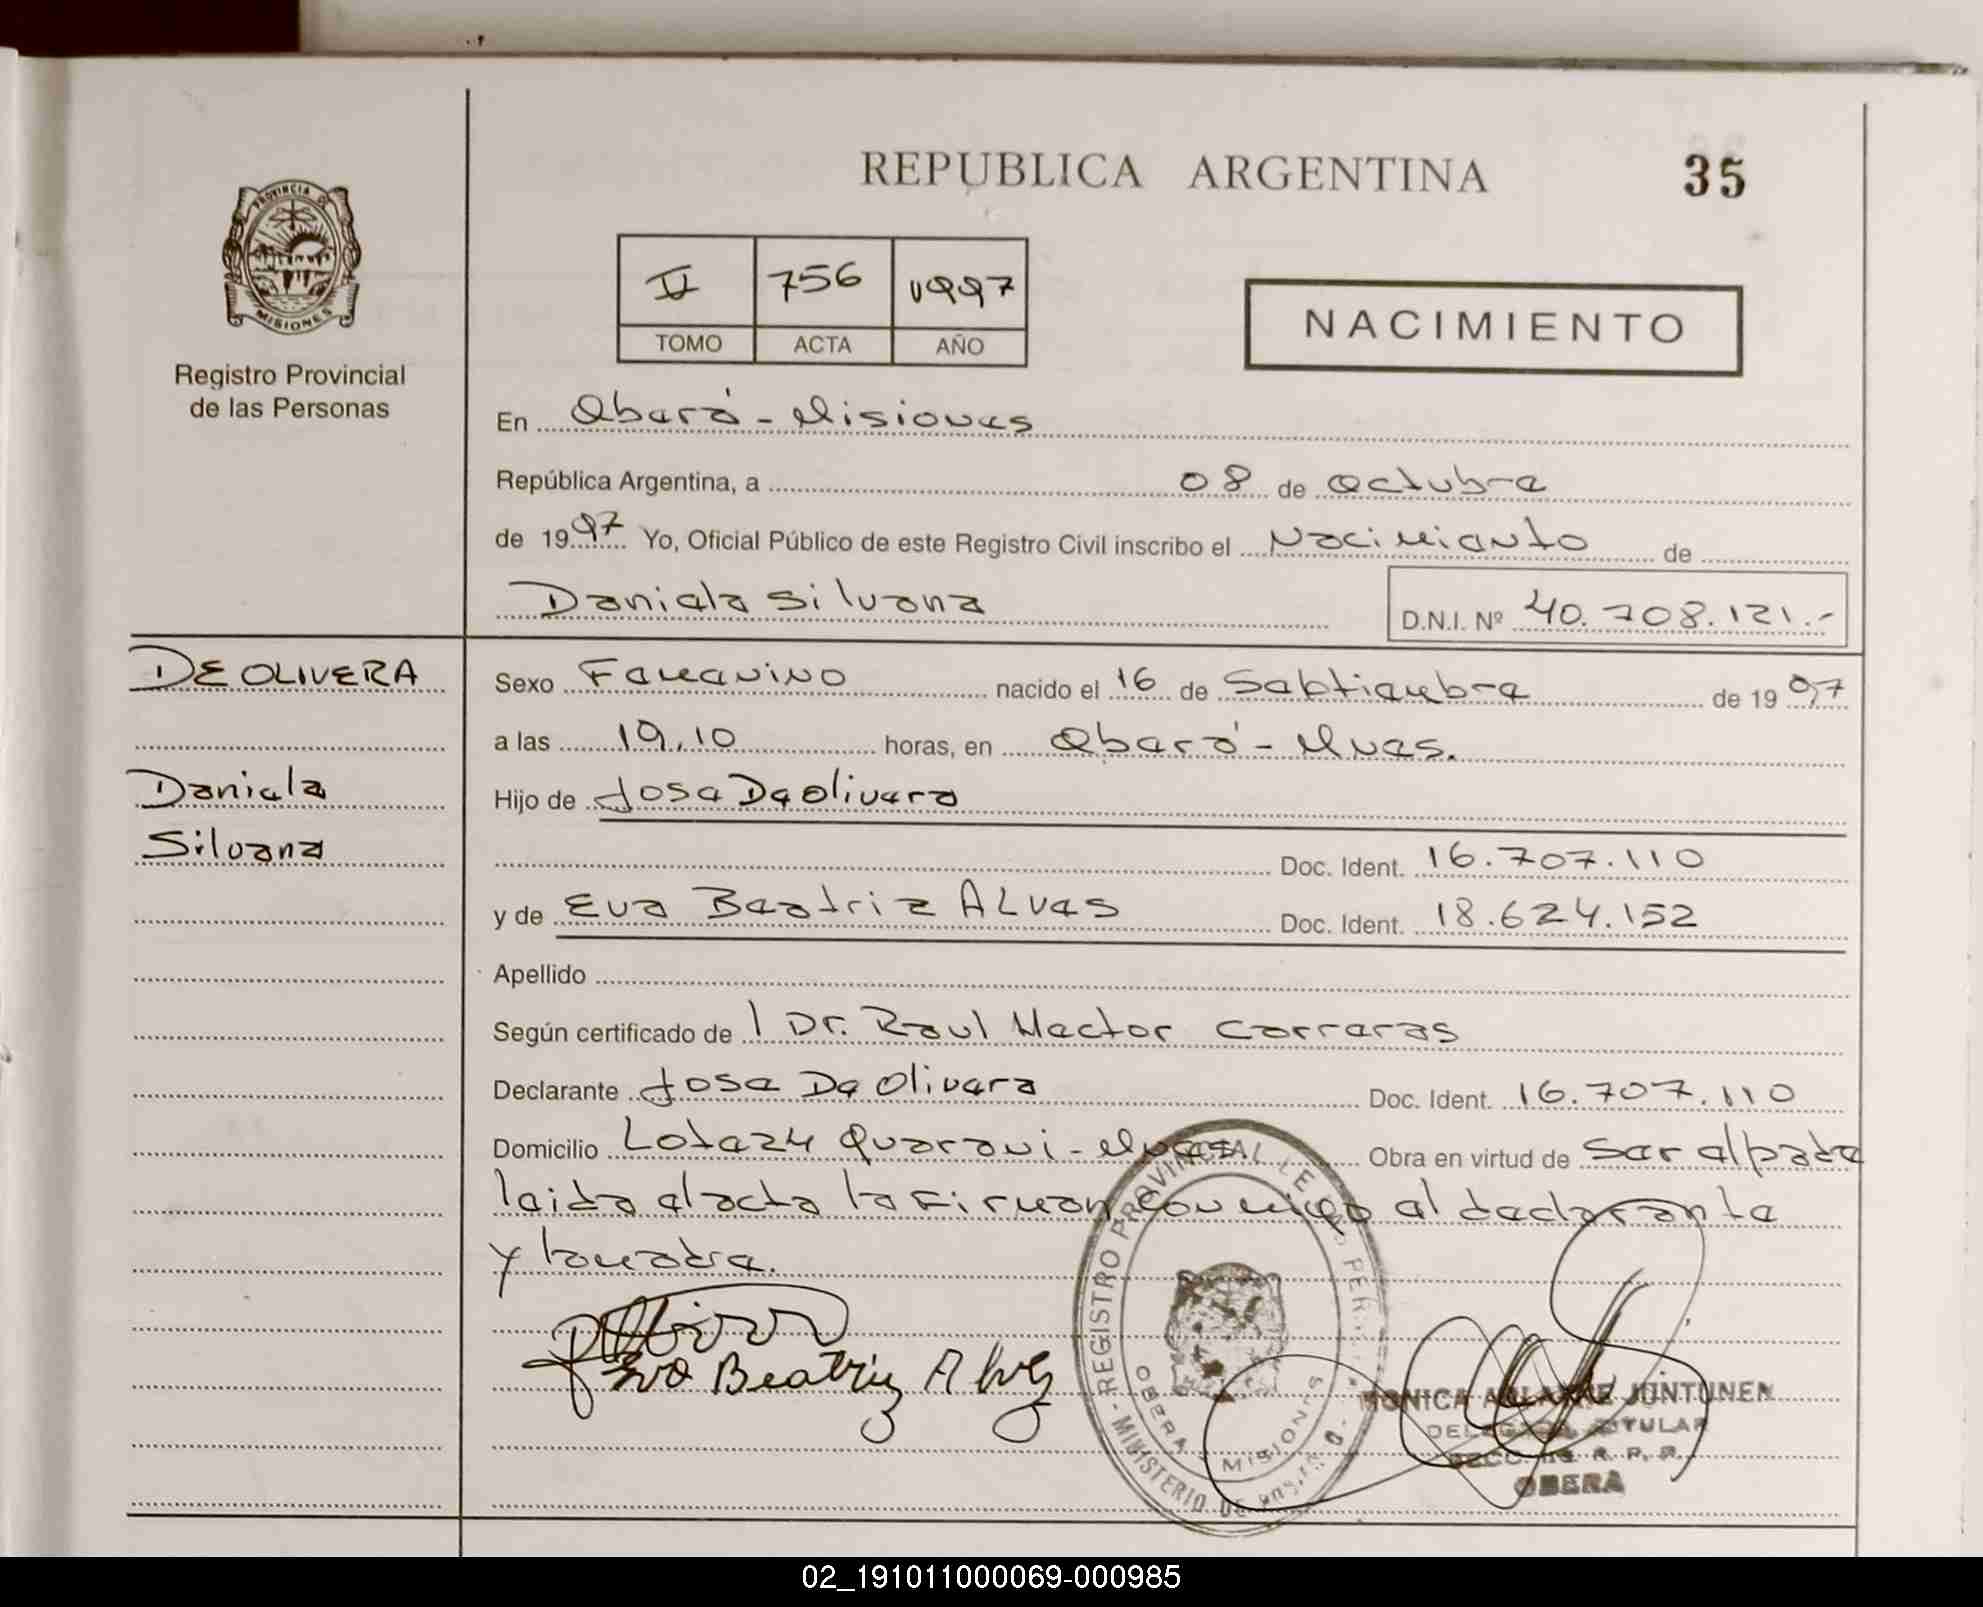 REPUBLICA ARGENTINA
35
PROVINCIA DE
MISIONES
Registro Provincial
de las Personas
II 756 1997
TOMO ACTA AÑO
NACIMIENTO
En Oberá - Misiones
República Argentina, a 08 de octubre
de 1997 Yo, Oficial Público de este Registro Civil inscribo el Nacimiento de
Daniela Silvana
D.N.I. Nº 40.708.121.-
DE OLIVERA
Daniela
Silvana
Sexo Femenino nacido el 16 de Sebtiembre de 1997
a las 19,10 horas, en Oberá - Mnes.
Hijo de Jose De olivera
Doc. Ident. 16.707.110
y de Eva Beatriz ALves Doc. Ident. 18.624.152
Apellido
Según certificado de l Dr. Raul Hector Carreras
Declarante Jose De Olivera Doc. Ident. 16.707.110
Domicilio Lote 24 Guarani - Mnes. Obra en virtud de ser el padre
leida el acta la firman conmigo el declarante
y la madre.
Eva Beatriz Alvez
REGISTRO PROVINCIAL DE LAS PERSONAS
OBERA MISIONES
MINISTERIO DE
MONICA JUNTUNEN
DELEGADA TITULAR
R. P. P.
OBERA
02_191011000069-000985